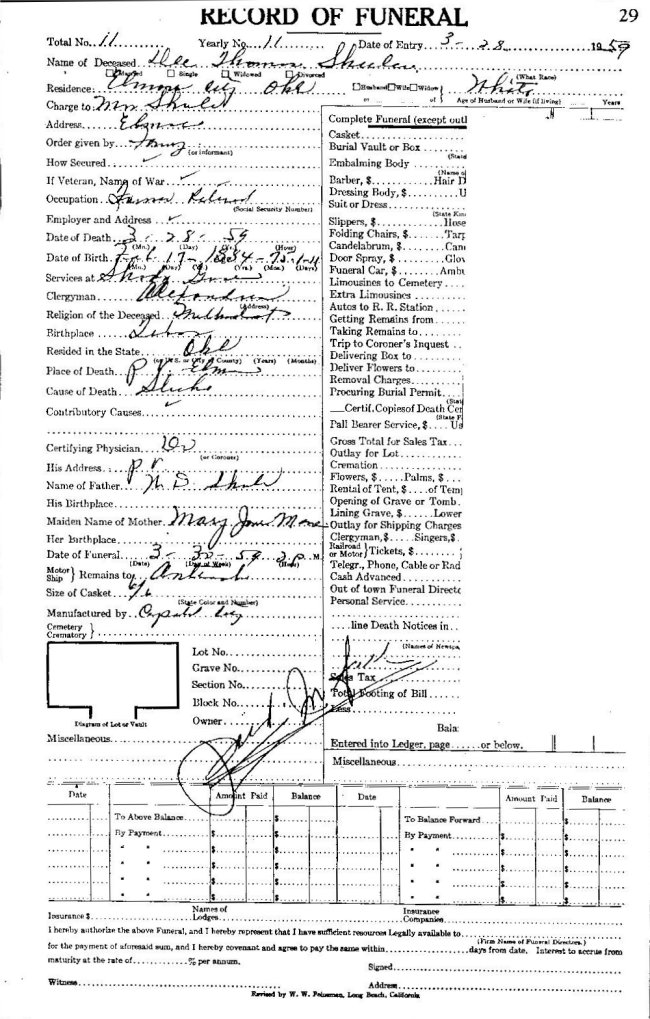 RECORD OF FUNERAL 29
Total No. 11 Yearly No. 11 Date of Entry 3-28 1959
Name of Deceased Thomas
Married Single Widowed Divorced
(What Race)
Residence: Elmore City Okl Husband Wife Widow White
or of Age of Husband or Wife (if living) Years
Charge to Mrs
Address Elmore
Order given by
(or informant)
How Secured
If Veteran, Name of War
Occupation Farmer Retired
(Social Security Number)
Employer and Address
Date of Death 3-28-59
(Mo.) (Day) (Yr.) (Hour)
Date of Birth Feb 17-1884-75-1-11
(Mo.) (Day) (Yr.) (Yrs.) (Mos.) (Days)
Services at Shady Grove
Clergyman Alexander
(Address)
Religion of the Deceased Methodist
Birthplace
Resided in the State Okl
(or U.S. or City or County) (Years) (Months)
Place of Death
Cause of Death
Contributory Causes
Certifying Physician
(or Coroner)
His Address
Name of Father
His Birthplace
Maiden Name of Mother Mary Jane
Her Birthplace
Date of Funeral 3-30-59 2 P. M
(Date) (Day of Week) (Hour)
Motor Ship } Remains to
Size of Casket 6/6
(State Color and Number)
Manufactured by Capitol City
Cemetery
Crematory }
Diagram of Lot or Vault
Lot No.
Grave No.
Section No.
Block No.
Owner
Miscellaneous
Complete Funeral (except outl
Casket
Burial Vault or Box
(State
Embalming Body
(Name of
Barber, $ Hair D
Dressing Body, $ U
Suit or Dress
(State Kind
Slippers, $ Hose
Folding Chairs, $ Tarp
Candelabrum, $ Cand
Door Spray, $ Glov
Funeral Car, $ Ambu
Limousines to Cemetery
Extra Limousines
Autos to R. R. Station
Getting Remains from
Taking Remains to
Trip to Coroner's Inquest
Delivering Box to
Deliver Flowers to
Removal Charges
Procuring Burial Permit
(Stat
Certif. Copies of Death Cer
(State F
Pall Bearer Service, $ Us
Gross Total for Sales Tax
Outlay for Lot
Cremation
Flowers, $ Palms, $
Rental of Tent, $ of Temp
Opening of Grave or Tomb
Lining Grave, $ Lower
Outlay for Shipping Charges
Clergyman, $ Singers, $
Railroad or Motor } Tickets, $
Telegr., Phone, Cable or Rad
Cash Advanced
Out of town Funeral Directo
Personal Service
line Death Notices in
(Names of Newspa
Sales Tax
Total Footing of Bill
Less
Bala:
Entered into Ledger, page or below.
Miscellaneous
Paid in full
Date Amount Paid Balance Date Amount Paid Balance
To Above Balance $ To Balance Forward $
By Payment $ $ By Payment $ $
" " $ $ " " $ $
" " $ $ " " $ $
" " $ $ " " $ $
" " $ $ " " $ $
Insurance $ Names of Lodges Insurance Companies
I hereby authorize the above Funeral, and I hereby represent that I have sufficient resources Legally available to
(Firm Name of Funeral Directors.)
for the payment of aforesaid sum, and I hereby covenant and agree to pay the same within days from date. Interest to accrue from
maturity at the rate of % per annum.
Signed
Witness Address
Revised by W. W. Feineman, Long Beach, California